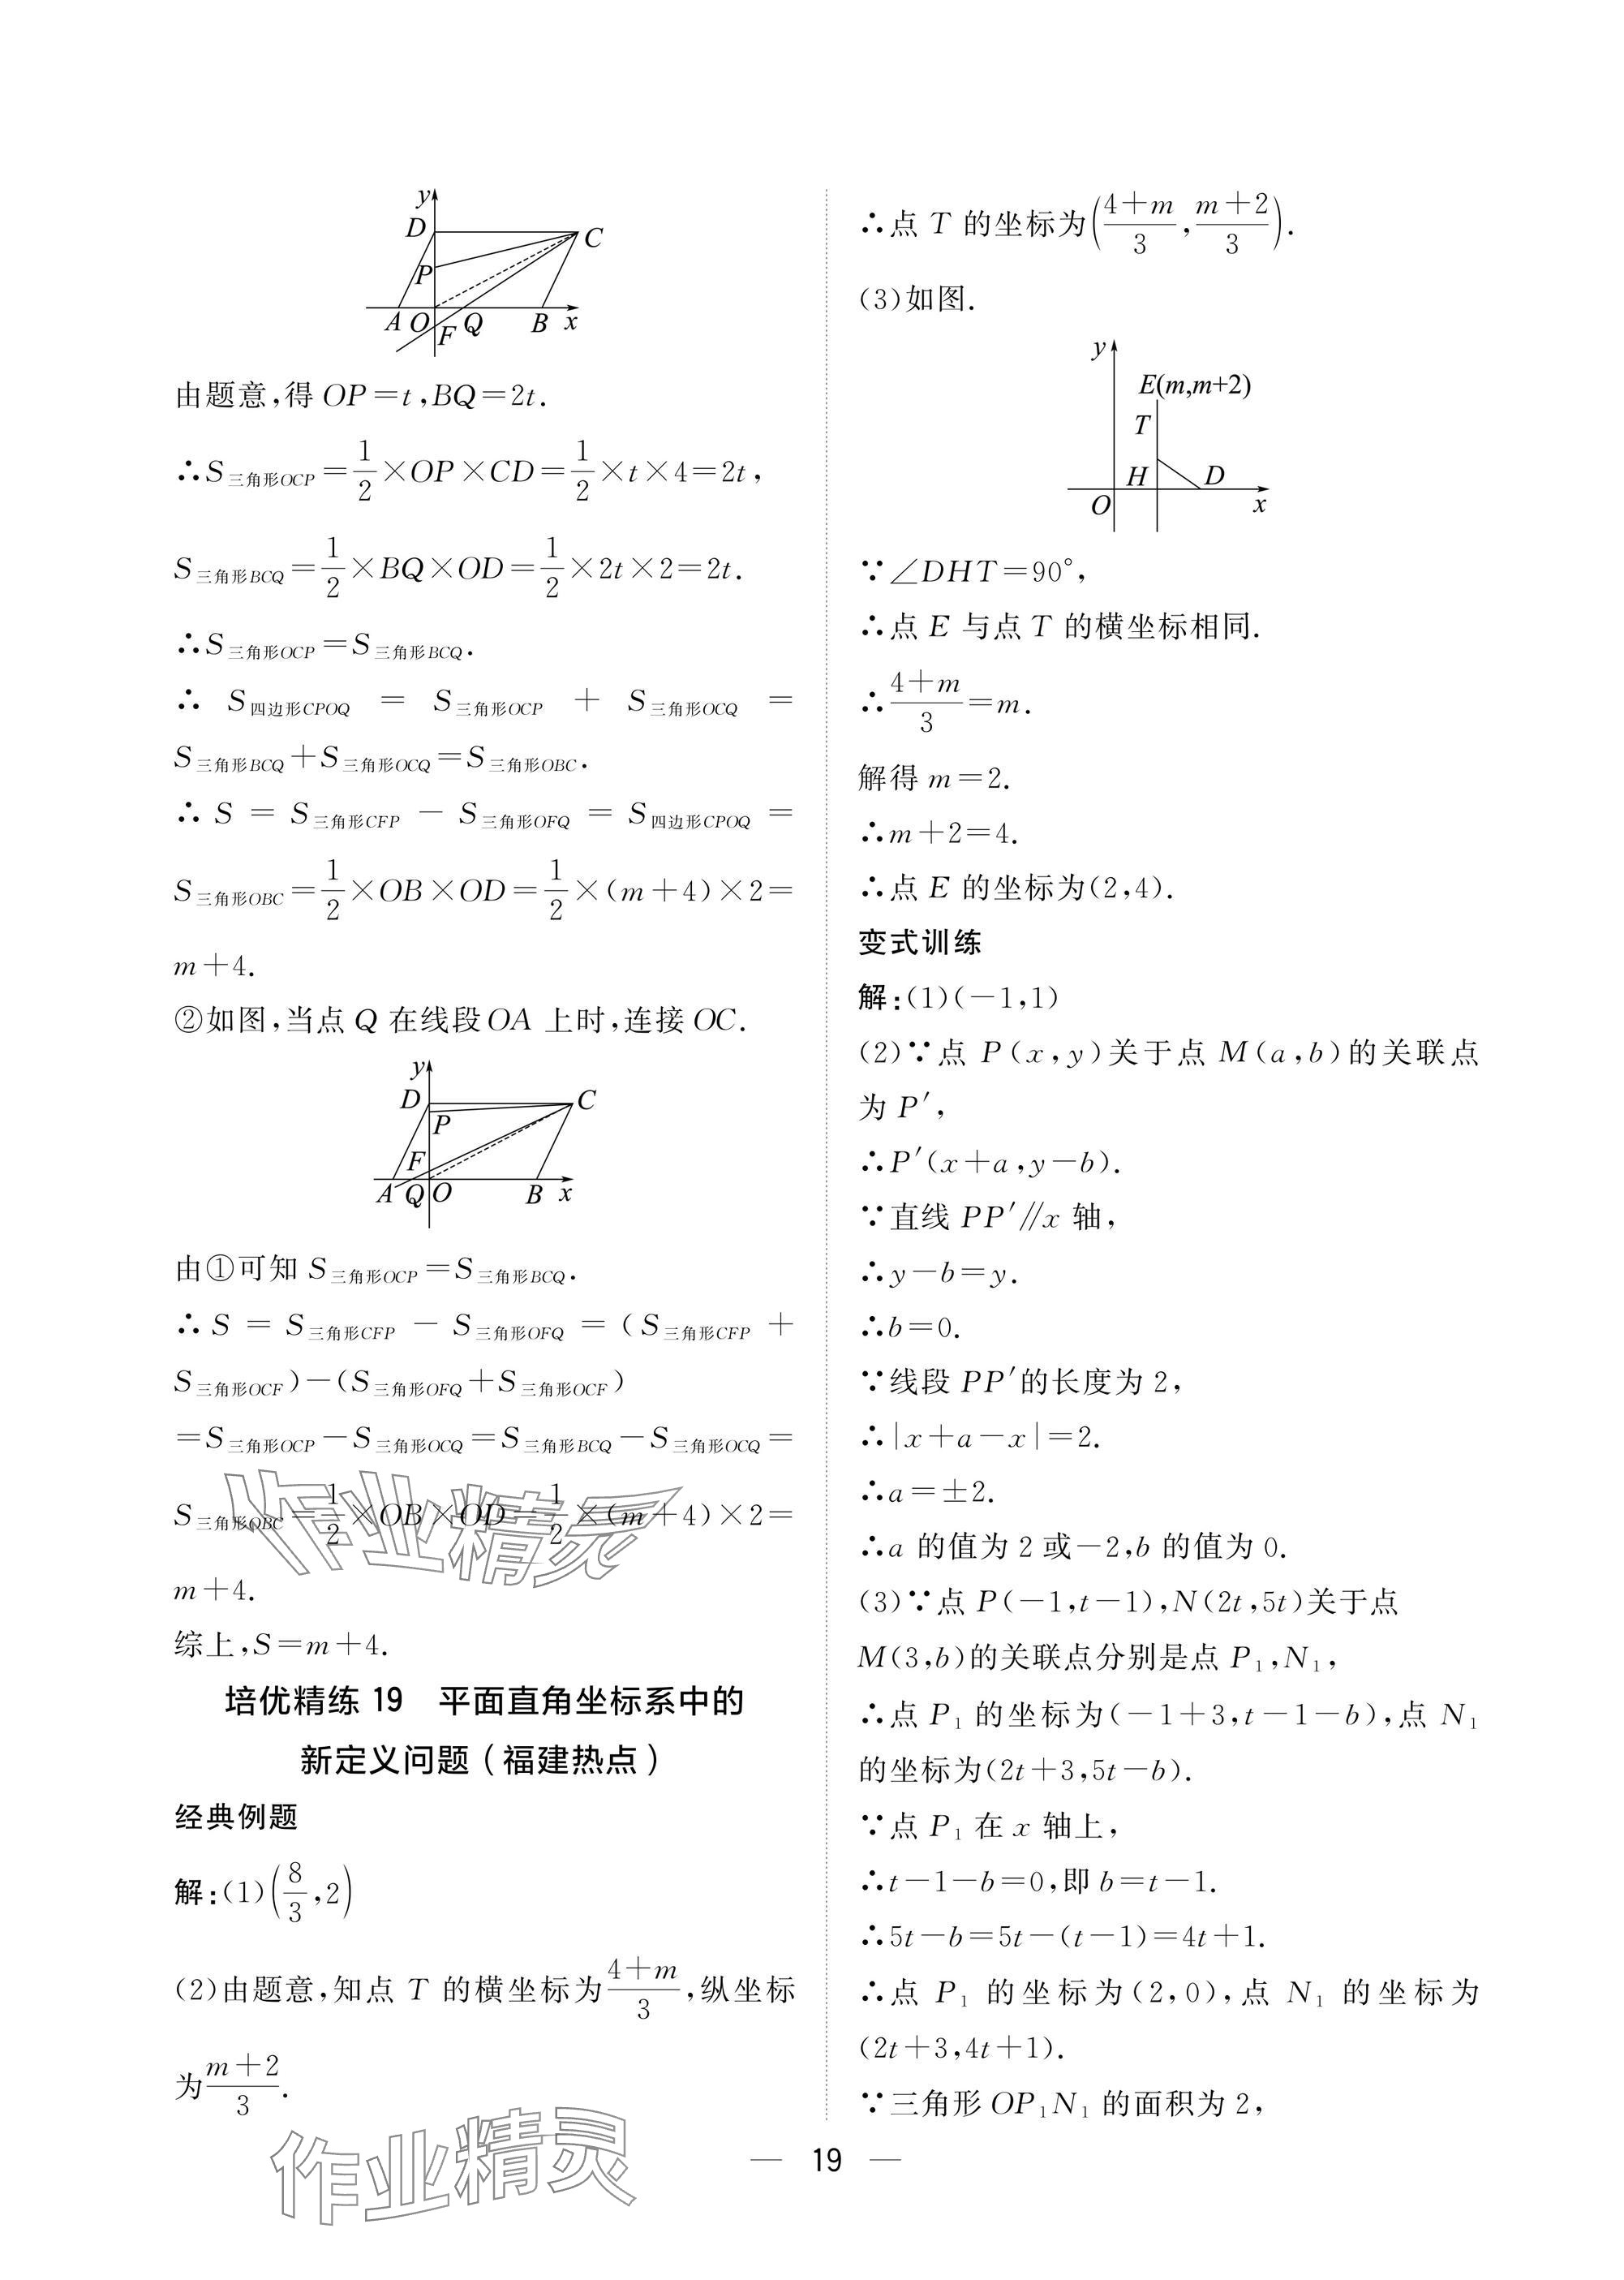 y
D
C
P
A O F Q B x
由题意,得 OP=t,BQ=2t.
∴S三角形OCP=1/2×OP×CD=1/2×t×4=2t,
S三角形BCQ=1/2×BQ×OD=1/2×2t×2=2t.
∴S三角形OCP=S三角形BCQ.
∴ S四边形CPOQ = S三角形OCP + S三角形OCQ =
S三角形BCQ+S三角形OCQ=S三角形OBC.
∴ S = S三角形CFP − S三角形OFQ = S四边形CPOQ =
S三角形OBC=1/2×OB×OD=1/2×(m+4)×2=
m+4.
②如图,当点 Q 在线段OA 上时,连接 OC.
y
D
C
P
F
A Q O B x
由①可知 S三角形OCP=S三角形BCQ.
∴ S = S三角形CFP − S三角形OFQ = (S三角形CFP +
S三角形OCF)−(S三角形OFQ+S三角形OCF)
=S三角形OCP−S三角形OCQ=S三角形BCQ−S三角形OCQ=
S三角形OBC=1/2×OB×OD=1/2×(m+4)×2=
m+4.
综上,S=m+4.
培优精练 19 平面直角坐标系中的
新定义问题(福建热点)
经典例题
解:(1)(8/3,2)
(2)由题意,知点 T 的横坐标为(4+m)/3,纵坐标
为(m+2)/3.
∴点 T 的坐标为((4+m)/3,(m+2)/3).
(3)如图.
y
E(m,m+2)
T
H D
O x
∵∠DHT=90°,
∴点 E 与点 T 的横坐标相同.
∴(4+m)/3=m.
解得 m=2.
∴m+2=4.
∴点 E 的坐标为(2,4).
变式训练
解:(1)(−1,1)
(2)∵点 P(x,y)关于点 M(a,b)的关联点
为 P′,
∴P′(x+a,y−b).
∵直线 PP′∥x 轴,
∴y−b=y.
∴b=0.
∵线段 PP′的长度为 2,
∴|x+a−x|=2.
∴a=±2.
∴a 的值为 2 或−2,b 的值为 0.
(3)∵点 P(−1,t−1),N(2t,5t)关于点
M(3,b)的关联点分别是点 P₁,N₁,
∴点 P₁ 的坐标为(−1+3,t−1−b),点 N₁
的坐标为(2t+3,5t−b).
∵点 P₁ 在 x 轴上,
∴t−1−b=0,即 b=t−1.
∴5t−b=5t−(t−1)=4t+1.
∴点 P₁ 的坐标为(2,0),点 N₁ 的坐标为
(2t+3,4t+1).
∵三角形 OP₁N₁ 的面积为 2,
— 19 —
作业精灵
作业精灵